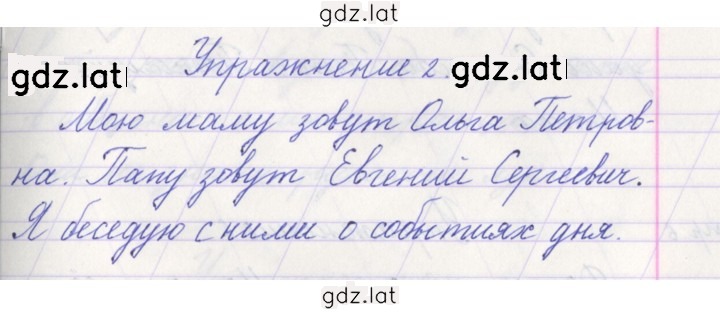 gdz.lat
Упражнение 2.
gdz.lat gdz.lat
Мою маму зовут Ольга Петров-
на. Папу зовут Евгений Сергеевич.
Я беседую с ними о событиях дня.
gdz.lat